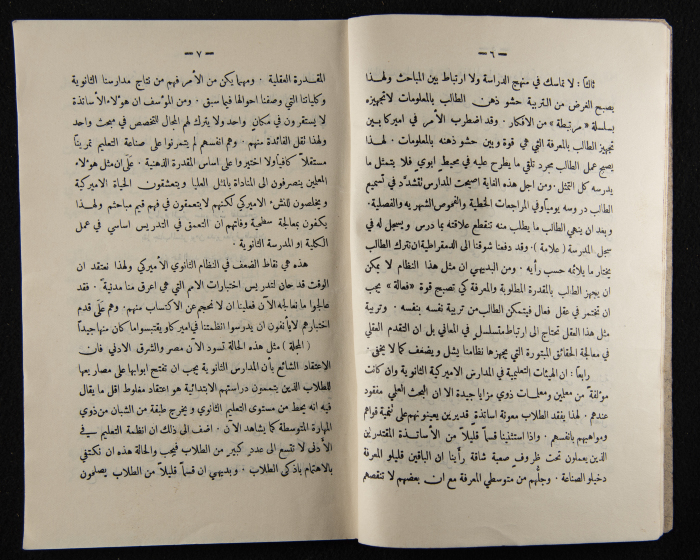 — ٦ —
ثالثاً : لا تماسك في منهج الدراسة ولا ارتباط بين المباحث ولهذا
يصبح الغرض من التربية حشو ذهن الطالب بالمعلومات لاتجهيزه
بسلسلة « مرتبطة » من الافكار . وقد اضطرب الأمر في اميركا بين
تجهيز الطالب بالمعرفة التي هي قوة وبين حشو ذهنه بالمعلومات . لهذا
يصبح عمل الطالب مجرد تلقي ما يطرح عليه في محيط ابوي فلا يتمثل ما
يدرسه كل التمثل . ومن اجل هذه الغاية اصبحت المدارس تتشدد في تسميع
الطالب دروسه يومياً وفي المراجعات الخطية والفحوص الشهرية والفصلية .
وبعد ان ينهي الطالب ما يطلب منه تنقطع علاقته بما درس ويسجل له في
سجل المدرسة ( علامة ) . وقد دفعنا شوقنا الى الدمقراطية ان نترك الطالب
يختار ما يلائمه حسب رأيه . ومن البديهي ان مثل هذا النظام لا يمكن
ان يجهز الطالب بالمقدرة المطلوبة والمعرفة كي تصبح قوة « فعالة » يجب
ان تختمر في عقل فعال فيتمكن الطالب من تربية نفسه بنفسه . وتربية
مثل هذا العقل تحتاج الى ارتباط متسلسل في المعاني بل ان التقدم العقلي
في معالجة الحقائق المبتورة التي يجهزها نظامنا يشل ويضعف كما لا يخفى .
رابعاً : ان الهيئات التعليمية في مدارس الاميركية الثانوية وان كانت
مؤلفة من معلمين ومعلمات ذوي مزايا جيدة الا ان البحث العلمي مفقود
عندهم . لهذا يفقد الطلاب معونة اساتذة قديرين يعينونهم على تنمية قواهم
ومواهبهم بانفسهم . واذا استثنينا قسماً قليلاً من الأساتذة المقتدرين
الذين يعملون تحت ظروف صعبة شاقة رأينا ان الباقين قليلو المعرفة
دخيلو الصناعة . وجلُّهم من متوسطي المعرفة مع ان بعضهم لا تنقصهم
— ٧ —
المقدرة العقلية . ومهما يكن من الأمر فهم من نتاج مدارسنا الثانوية
وكلياتنا التي وصفنا احوالها فيما سبق . ومن المؤسف ان هؤلاء الأساتذة
لا يستقرون في مكان واحد ولا يترك لهم المجال للتخصص في مبحث واحد
ولهذا تقل الفائدة منهم . وهم انفسهم لم يتمرنوا على صناعة التعليم تمريناً
مستقلاً كافياً ولا اختيروا على اساس المقدرة الذهنية . على ان مثل هؤلاء
المعلمين ينصرفون الى المناداة بالمثل العليا ويتعشقون الحياة الاميركية
ويخلصون للنشء الاميركي لكنهم لا يتعمقون في فهم قيم مباحثهم ولهذا
يكتفون بمعالجة سطحية وفاتهم ان التعمق في التدريس اساسي في عمل
الكلية او المدرسة الثانوية .
هذه هي نقاط الضعف في النظام الثانوي الأميركي ولهذا نعتقد ان
الوقت قد حان لتدريس اختبارات الامم التي هي اعرق منا مدنية . فقد
عالجوا ما نعالجه الآن فعلينا ان لا نحجم عن الاكتساب منهم . وهم على قدم
اختبارهم لا يأنفون ان يدرسوا انظمتنا في اميركا ويقتبسوا ما كان منها جيداً
( المجلة ) مثل هذه الحالة تسود الآن مصر والشرق الادنى فان
الاعتقاد الشائع بأن المدارس الثانوية يجب ان تفتح ابوابها على مصاريعها
للطلاب الذين يتممون دراستهم الابتدائية هو اعتقاد مغلوط اقل ما يقال
فيه انه يحط من مستوى التعليم الثانوي ويخرج طبقة من الشبان من ذوي
المهارة المتوسطة كما يشاهد الآن . اضف الى ذلك ان انظمة التعليم في
الأدنى لا تتسع الى عدد كبير من الطلاب فيجب والحالة هذه ان نكتفي
بالاهتمام باذكى الطلاب . وبديهي ان قسماً قليلاً من الطلاب يصلحون